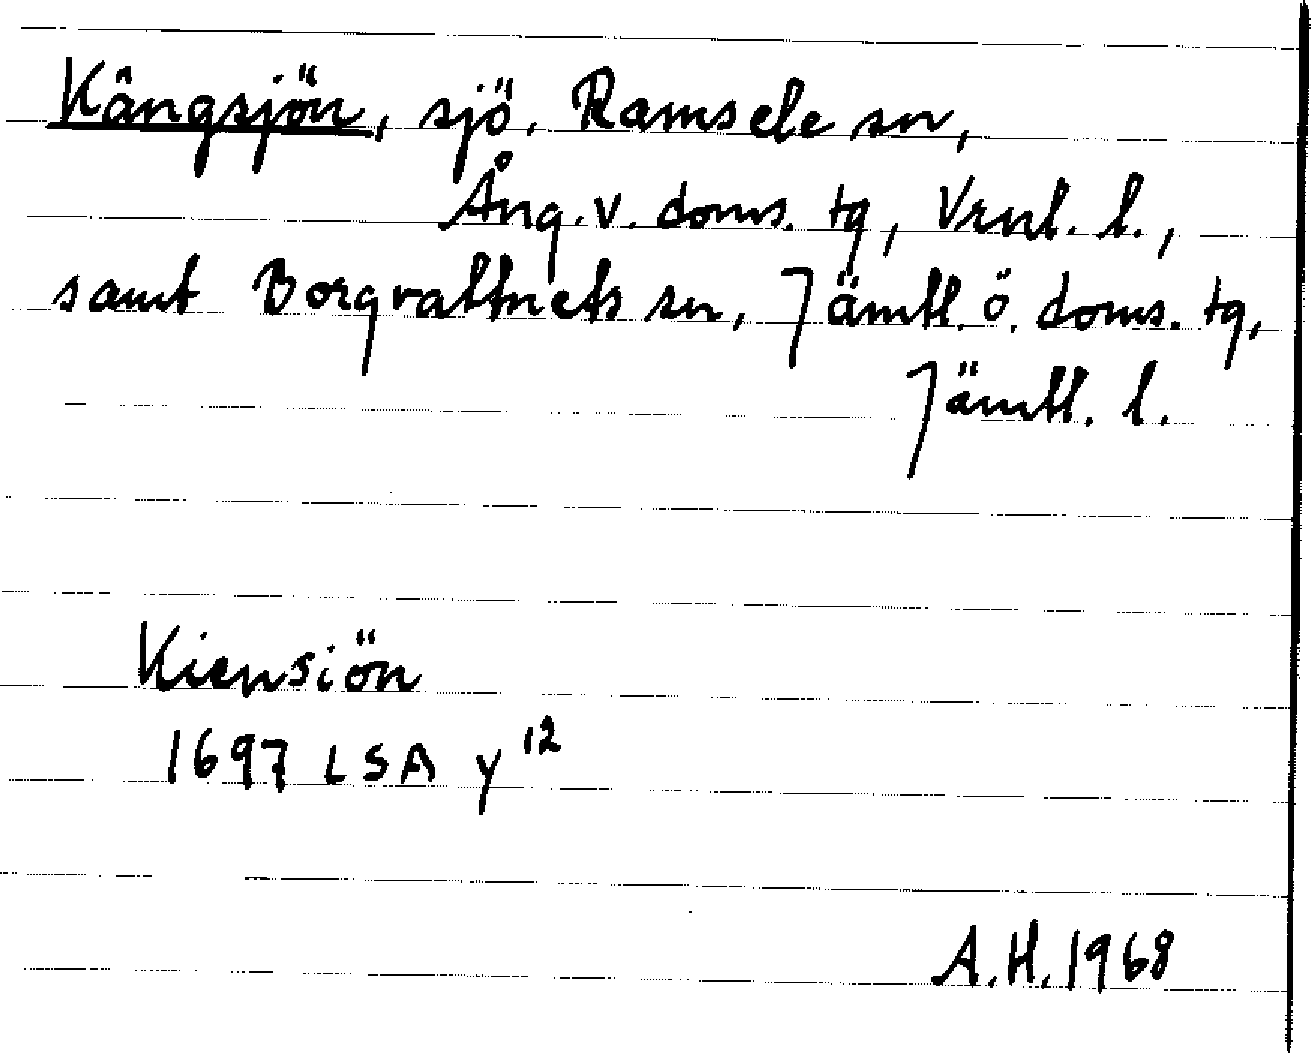 Kångsjön, sjö, Ramsele sn,
Ång. v. doms. tg, Vrnl. l.,
samt Borgvattnets sn, Jämtl. ö. doms. tg,
Jämtl. l.
Kiensiön
1697 LSA y 12
A.H. 1968